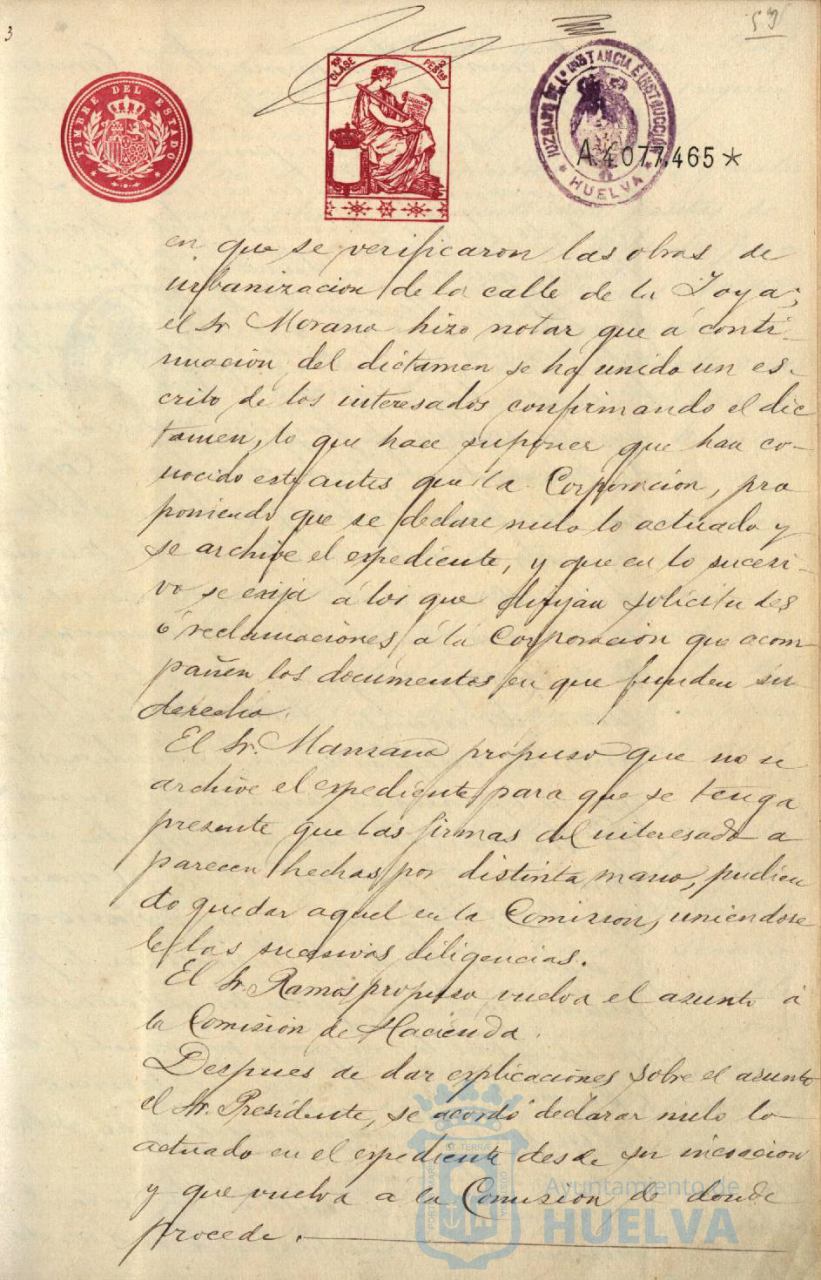 3
59
TIMBRE DEL ESTADO
CLASE
PESTAS
JUZGADO DE 1ª INSTANCIA É INSTRUCCIÓN
HUELVA
A4.077.465*
en que se verificaron las obras de
urbanizacion de la calle de la Joya;
el Sr Morano hizo notar que á conti-
nuación del dictamen se ha unido un es-
crito de los interesados confirmando el dic
tamen, lo que hace suponer que han co-
nocido este antes que la Corporación, pro
poniendo que se declare nulo lo actuado y
se archive el espediente, y que en lo sucesi-
vo se exija á los que dirijan solicitudes
ó reclamaciones á la Corporación que acom
pañen los documentos en que funden su
derecho.
El Sr. Manzano propuso que no se
archive el espediente para que se tenga
presente que las firmas del interesado a
parecen hechas por distinta mano, pudien
do quedar aquel en la Comision, uniendose
le las sucesivas diligencias.
El Sr. Ramos propuso vuelva el asunto á
la Comisión de Hacienda.
Despues de dar esplicaciones sobre el asunto
el Sr. Presidente, se acordó declarar nulo lo
actuado en el espediente desde su incoacion
y que vuelva a la Comision de donde
procede.
Ayuntamiento de
HUELVA